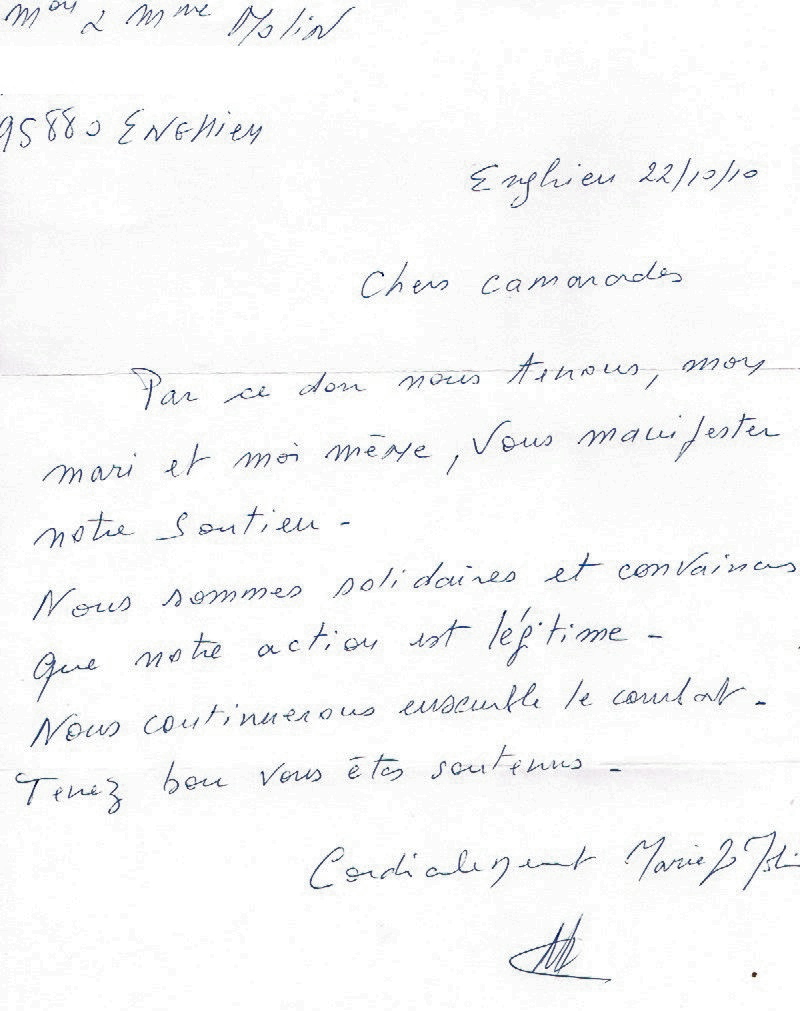 Mon & Mme Molin
95880 ENGHien
Enghien 22/10/10
Chers camarades
Par ce don nous tenons, mon
mari et moi même, vous manifester
notre soutien -
Nous sommes solidaires et convaincus
que notre action est légitime -
Nous continuerons ensemble le combat -
Tenez bon vous êtes soutenus -
Cordialement Marie